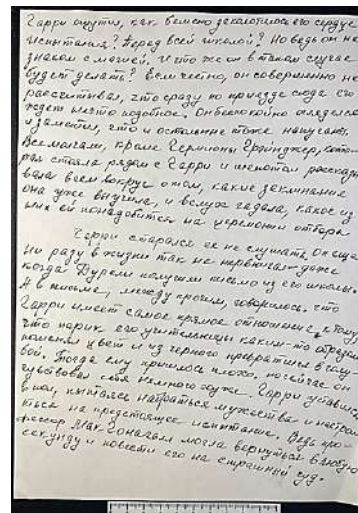 Гарри ощутил, как бешено заколотилось его сердце.
Испытания? Перед всей школой? Но ведь он не
знаком с магией. И что же он в таком случае
будет делать? Если честно, он совершенно не
рассчитывал, что сразу по приезде сюда его
ждет нечто подобное. Он беспокойно огляделся
и заметил, что и остальные тоже напуганы.
Все молчали, кроме Гермионы Грэйнджер, кото-
рая стояла рядом с Гарри и шепотом рассказы-
вала всем вокруг о том, какие заклинания
она уже выучила, и вслух гадала, какое из
них ей понадобится на церемонии отбора
Гарри старался ее не слушать, он еще
ни раз в жизни так не нервничал - даже
когда Дурсли получили письмо из его школы.
А в письме, между прочим, говорилось, что
Гарри имеет самое прямое отношение к тому,
что парик его учительницы каким-то образом
поменял цвет и из черного превратился в голу-
бой. Тогда ему пришлось плохо, но сейчас он
чувствовал себя намного хуже. Гарри уставился
в пол, пытаясь набраться мужества и настрои-
ться на предстоящее испытание. Ведь про-
фессор Мак-Гонагалл могла вернуться в любую
секунду и повести его на страшный суд.